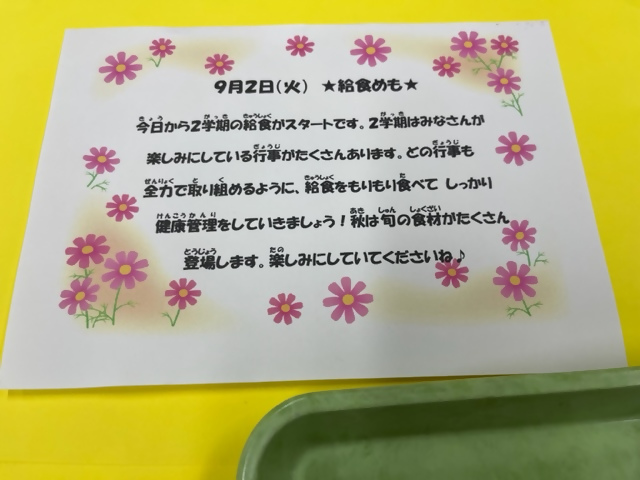 9月2日(火) ★給食めも★
今日から2学期の給食がスタートです。2学期はみなさんが
楽しみにしている行事がたくさんあります。どの行事も
全力で取り組めるように、給食をもりもり食べて しっかり
健康管理をしていきましょう!秋は旬の食材がたくさん
登場します。楽しみにしていてくださいね♪